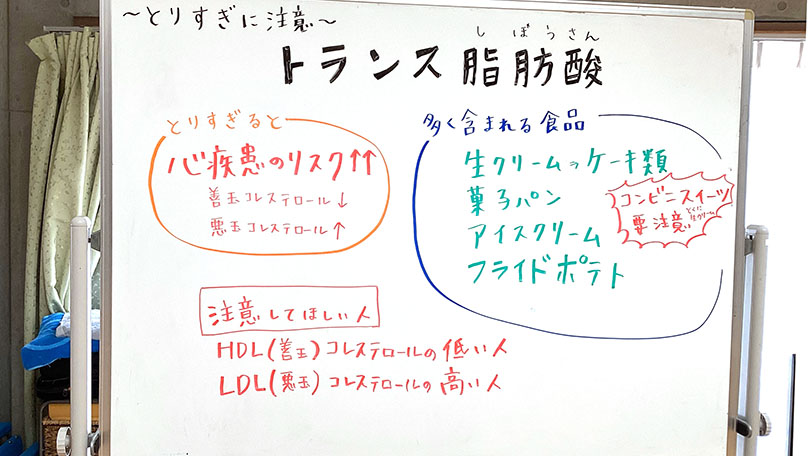 ～とりすぎに注意～
しぼうさん
トランス脂肪酸
とりすぎると
心疾患のリスク↑↑
善玉コレステロール↓
悪玉コレステロール↑
多く含まれる食品
生クリーム、ケーキ類
菓子パン
アイスクリーム
フライドポテト
コンビニスイーツ
要注意
とくに
生クリーム
注意してほしい人
HDL(善玉)コレステロールの低い人
LDL(悪玉)コレステロールの高い人